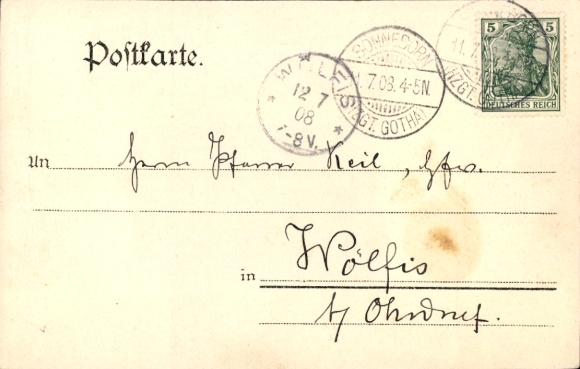 Postkarte.
5 5
DEUTSCHES REICH
SONNEBORN
7.08. 4-5N.
HZGT. GOTHA
WÖLFIS
12 7
08
7-8V.
An Herrn Pfarrer Keil, Hfw.
in Wölfis
b/ Ohrdruf.